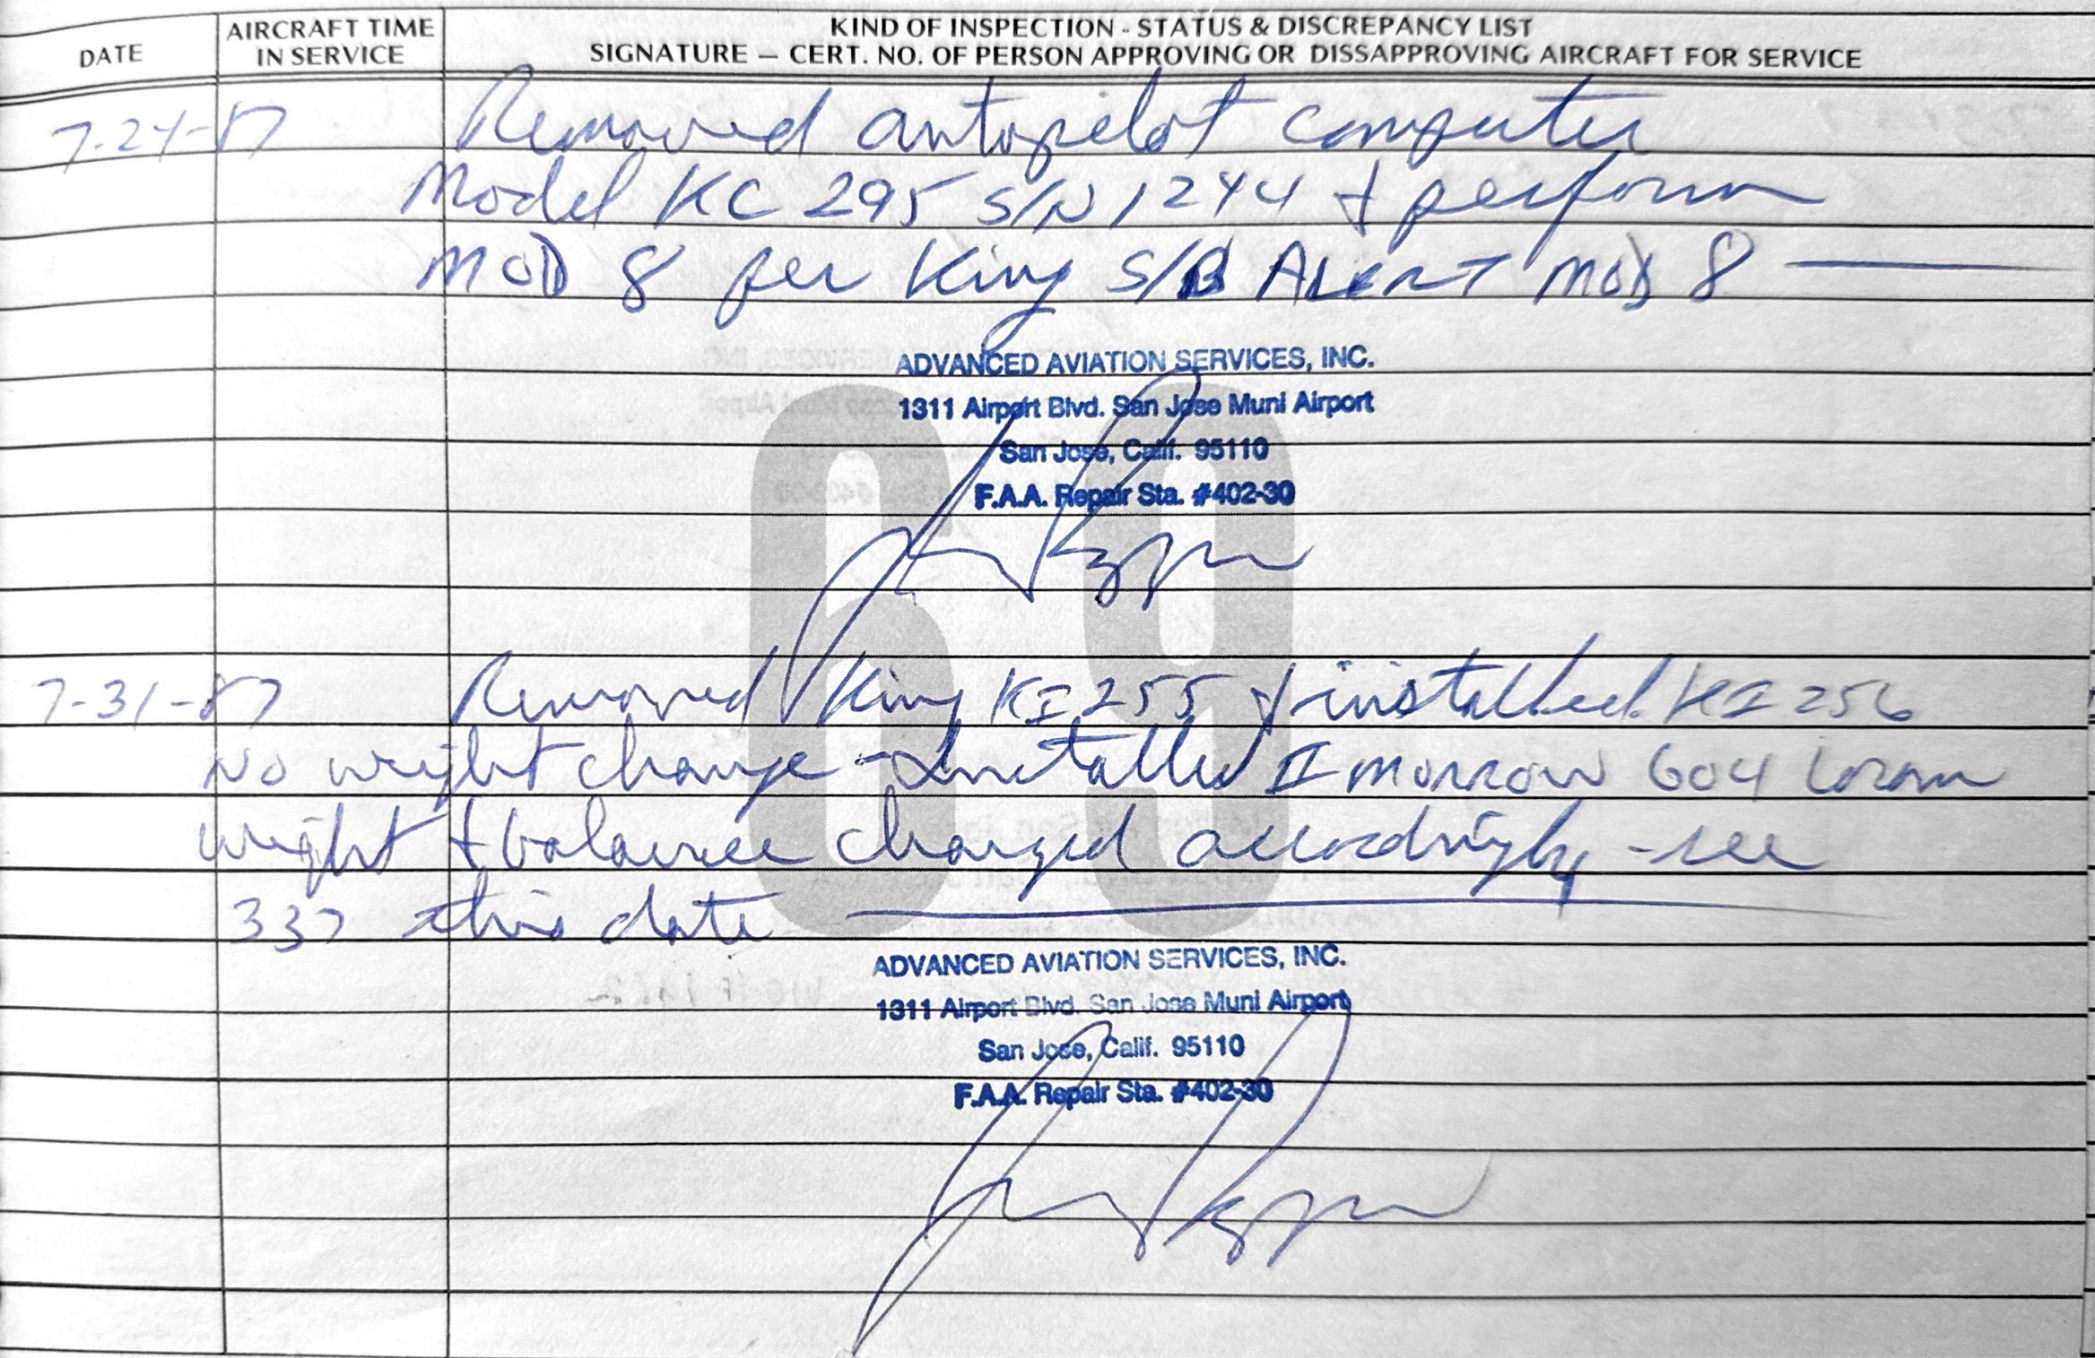 DATE
AIRCRAFT TIME
IN SERVICE
KIND OF INSPECTION - STATUS & DISCREPANCY LIST
SIGNATURE — CERT. NO. OF PERSON APPROVING OR DISSAPPROVING AIRCRAFT FOR SERVICE
69
7-24-87 Removed autopilot computer
Model KC 295 S/N 1244 + perform
MOD 8 per King S/B ALERT MOD 8
ADVANCED AVIATION SERVICES, INC.
1311 Airport Blvd. San Jose Muni Airport
San Jose, Calif. 95110
F.A.A. Repair Sta. #402-30
7-31-87 Removed King KI 255 + installed KI 256
No weight change - Installed II morrow 604 Loran
weight + balance changed accordingly - see
337 this date
ADVANCED AVIATION SERVICES, INC.
1311 Airport Blvd. San Jose Muni Airport
San Jose, Calif. 95110
F.A.A. Repair Sta. #402-30